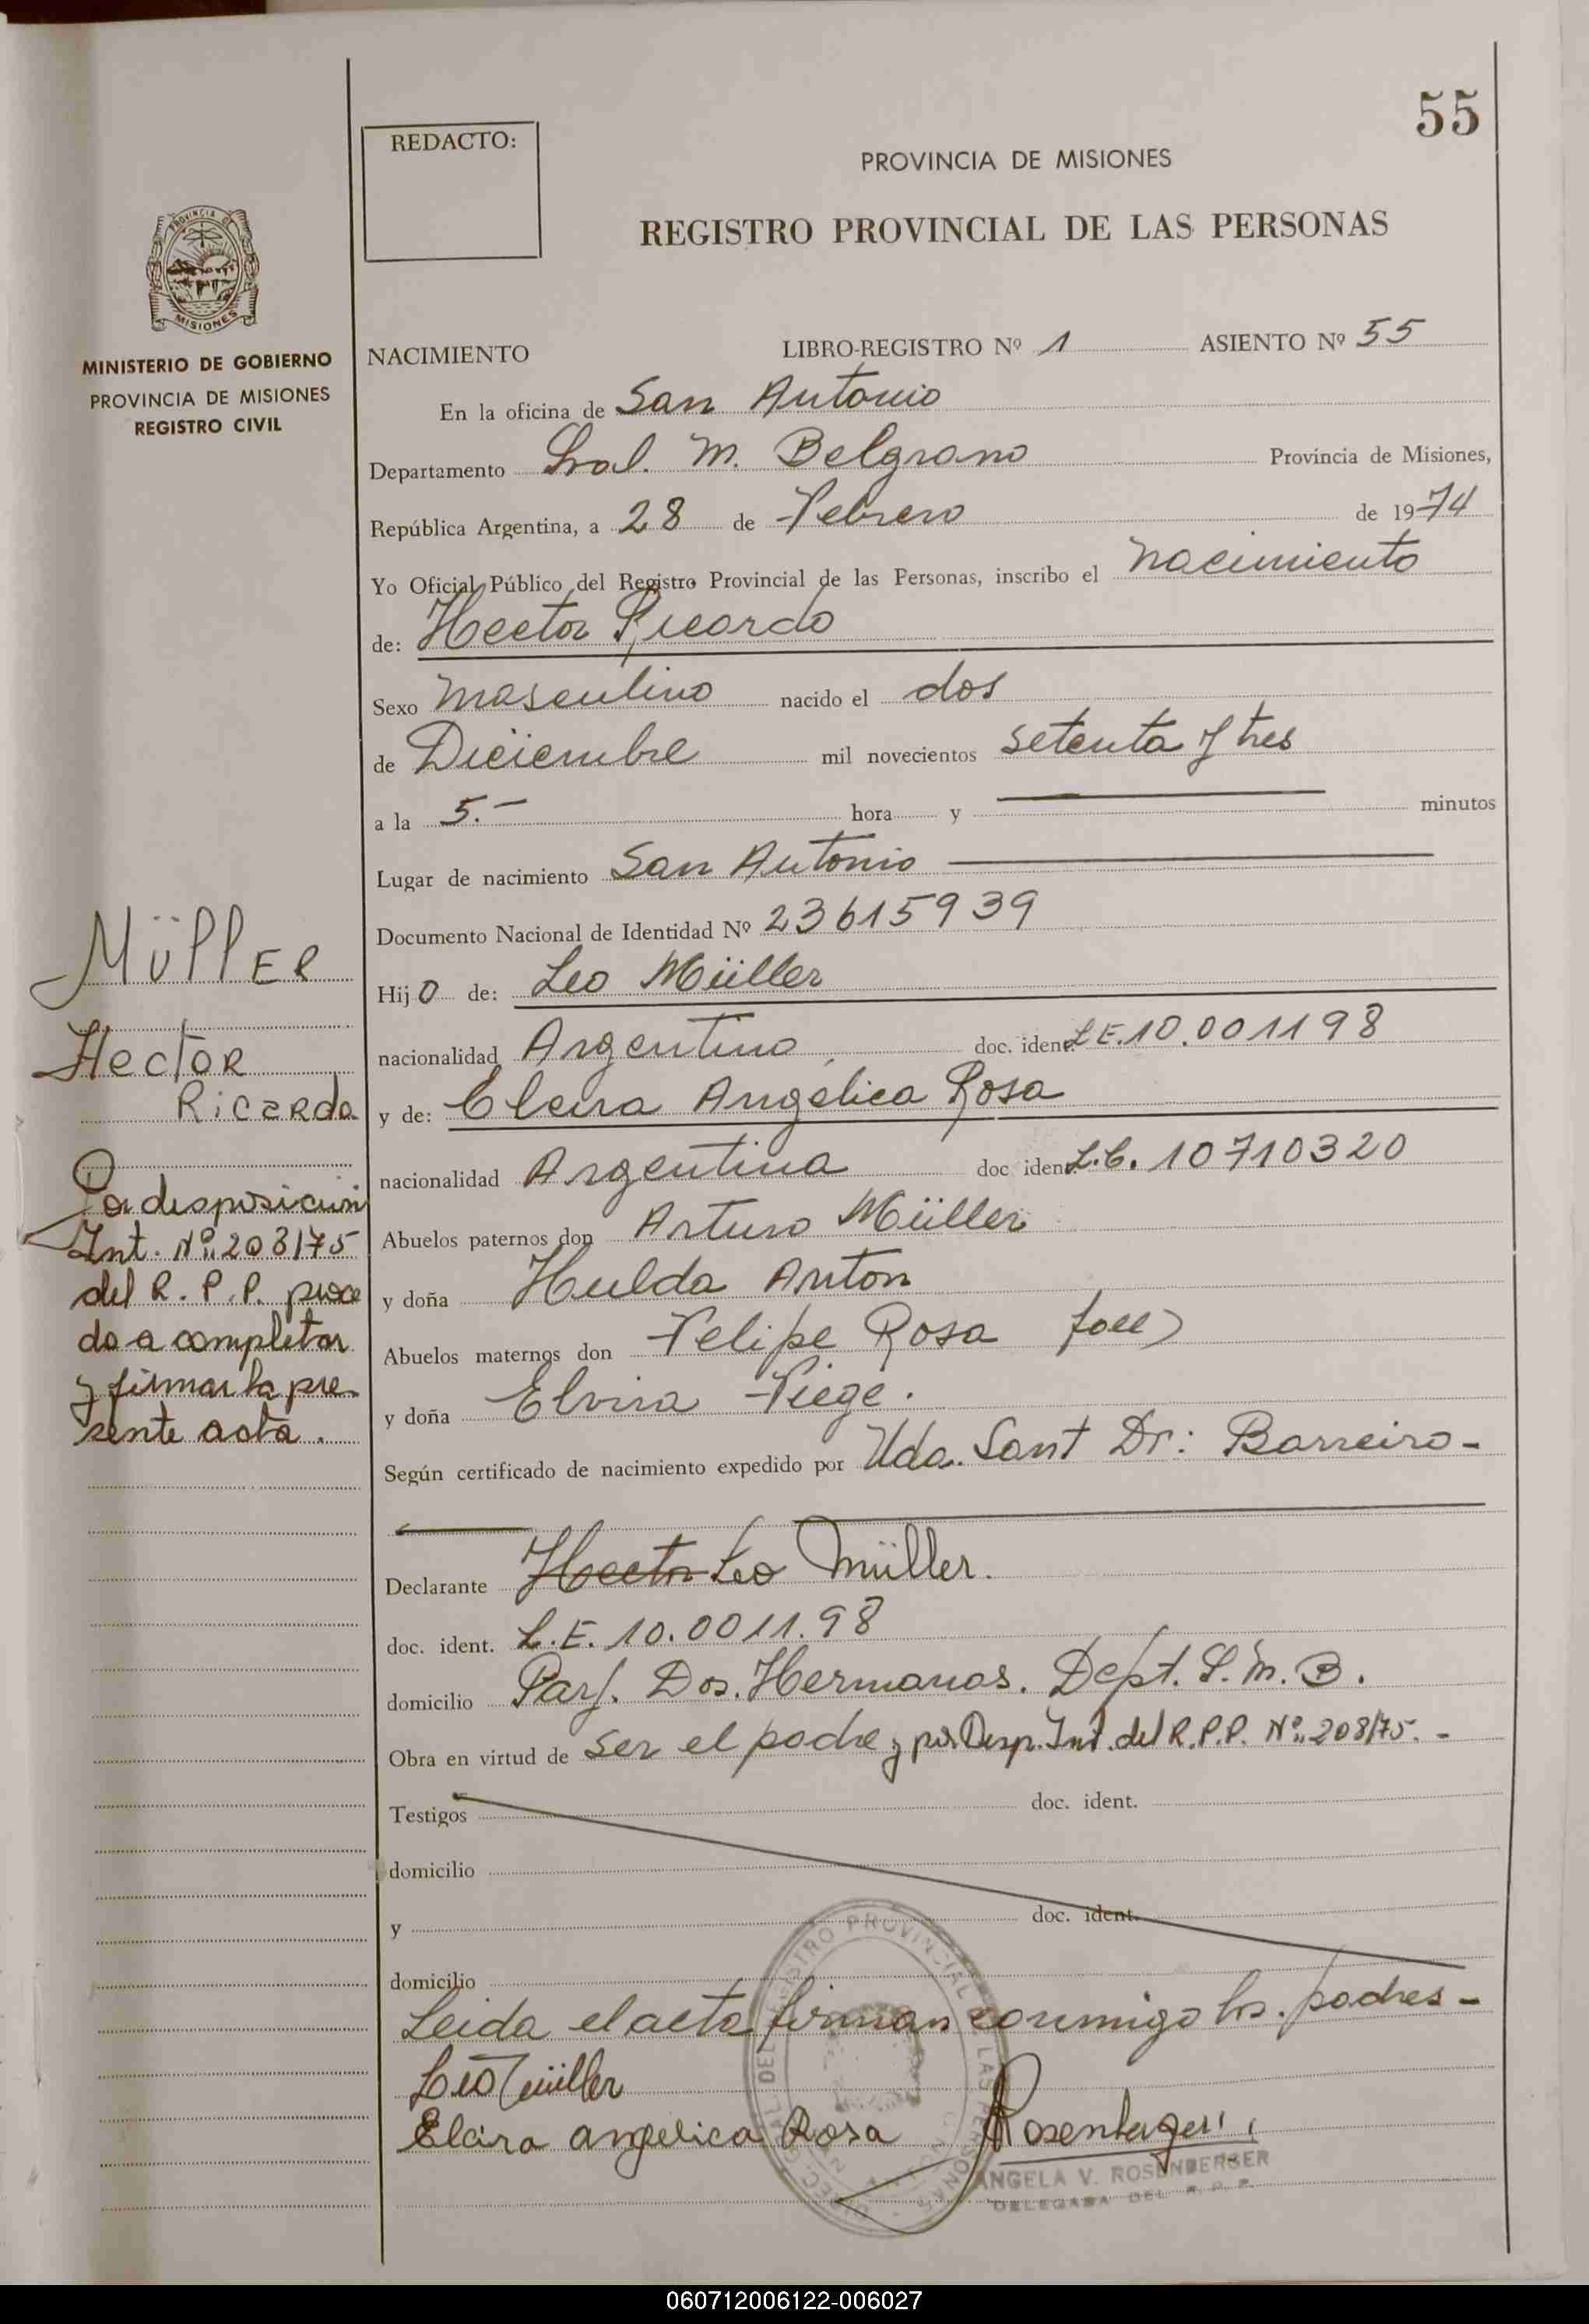 55
REDACTO:
PROVINCIA DE MISIONES
REGISTRO PROVINCIAL DE LAS PERSONAS
PROVINCIA DE
MISIONES
MINISTERIO DE GOBIERNO
PROVINCIA DE MISIONES
REGISTRO CIVIL
NACIMIENTO LIBRO-REGISTRO Nº 1 ASIENTO Nº 55
En la oficina de San Antonio
Departamento Gral. M. Belgrano Provincia de Misiones,
República Argentina, a 28 de Febrero de 1974
Yo Oficial Público del Registro Provincial de las Personas, inscribo el nacimiento
de: Hector Ricardo
Sexo masculino nacido el dos
de Diciembre mil novecientos setenta y tres
a la 5.- hora y minutos
Lugar de nacimiento San Antonio
Documento Nacional de Identidad Nº 23615939
Hijo de: Leo Müller
nacionalidad Argentino doc. ident. L.E. 10.001198
y de: Elcira Angelica Rosa
nacionalidad Argentina doc ident. L.C. 10710320
Abuelos paternos don Arturo Müller
y doña Hulda Anton
Abuelos maternos don Felipe Rosa
y doña Elvira Fiege.
Según certificado de nacimiento expedido por Uda. Sant Dr: Barreiro-
Declarante Hector Leo Müller.
doc. ident. L.E. 10.0011.98
domicilio Parj. Dos. Hermanas. Dept. G. M. B.
Obra en virtud de ser el padre y por Disp. Int. del R.P.P. Nº 208/75.-
Testigos doc. ident.
domicilio
y doc. ident.
domicilio
Leida el acta firman conmigo los padres-
Leo Müller
Elcira angelica Rosa Rosenberger
ANGELA V. ROSENBERGER
DELEGADA DEL R.P.P.
MüllER
Hector
Ricardo
Por disposicion
Int. Nº 208/75
del R. P. P. proce
do a completar
y firmar la pre-
sente acta.
060712006122-006027